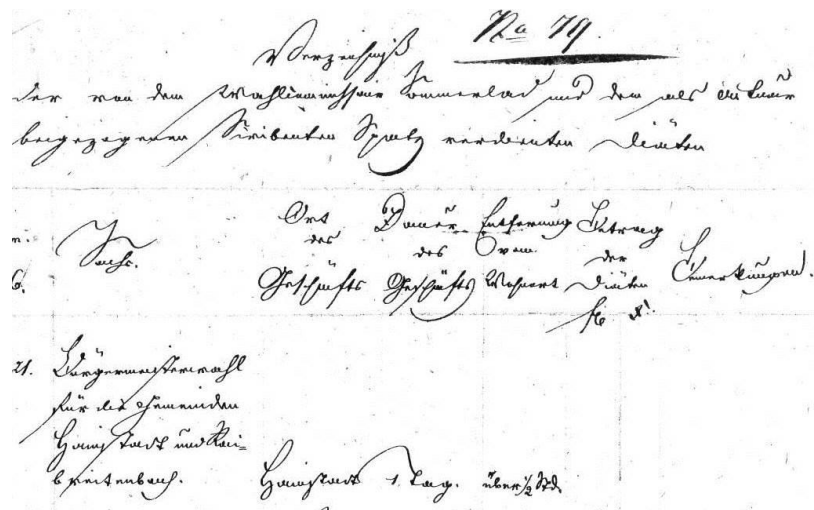 No 79.
Verzeichniß
der von dem Wahlcommissair Sommerlad und dem als Actuar
beigezogenen Scribenten Spatz verdienten Diäten
Sache.
Ort des Geschäfts
Dauer des Geschäfts
Entfernung vom Wohnort
Betrag der Diäten
fl. xr.
Bemerkungen.
21. Bürgermeisterwahl
für die Gemeinden
Hainstadt und Rai-
breitenbach. Hainstadt 1 Tag. über 1/2 Std.